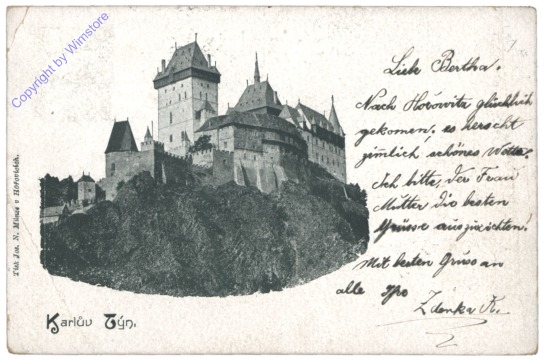 Copyright by Wimstore
Liebe Bertha.
Nach Hořovitz glücklich
gekomen, es herscht
zimlich schönes Wetter.
Ich bitte, der Frau
Mutter die besten
Grüsse auszurichten!
Mit besten Gruss an
alle Ihre
Zdenka K.
Tisk Jos. N. Minus v Hořovicích.
Karlův Týn.